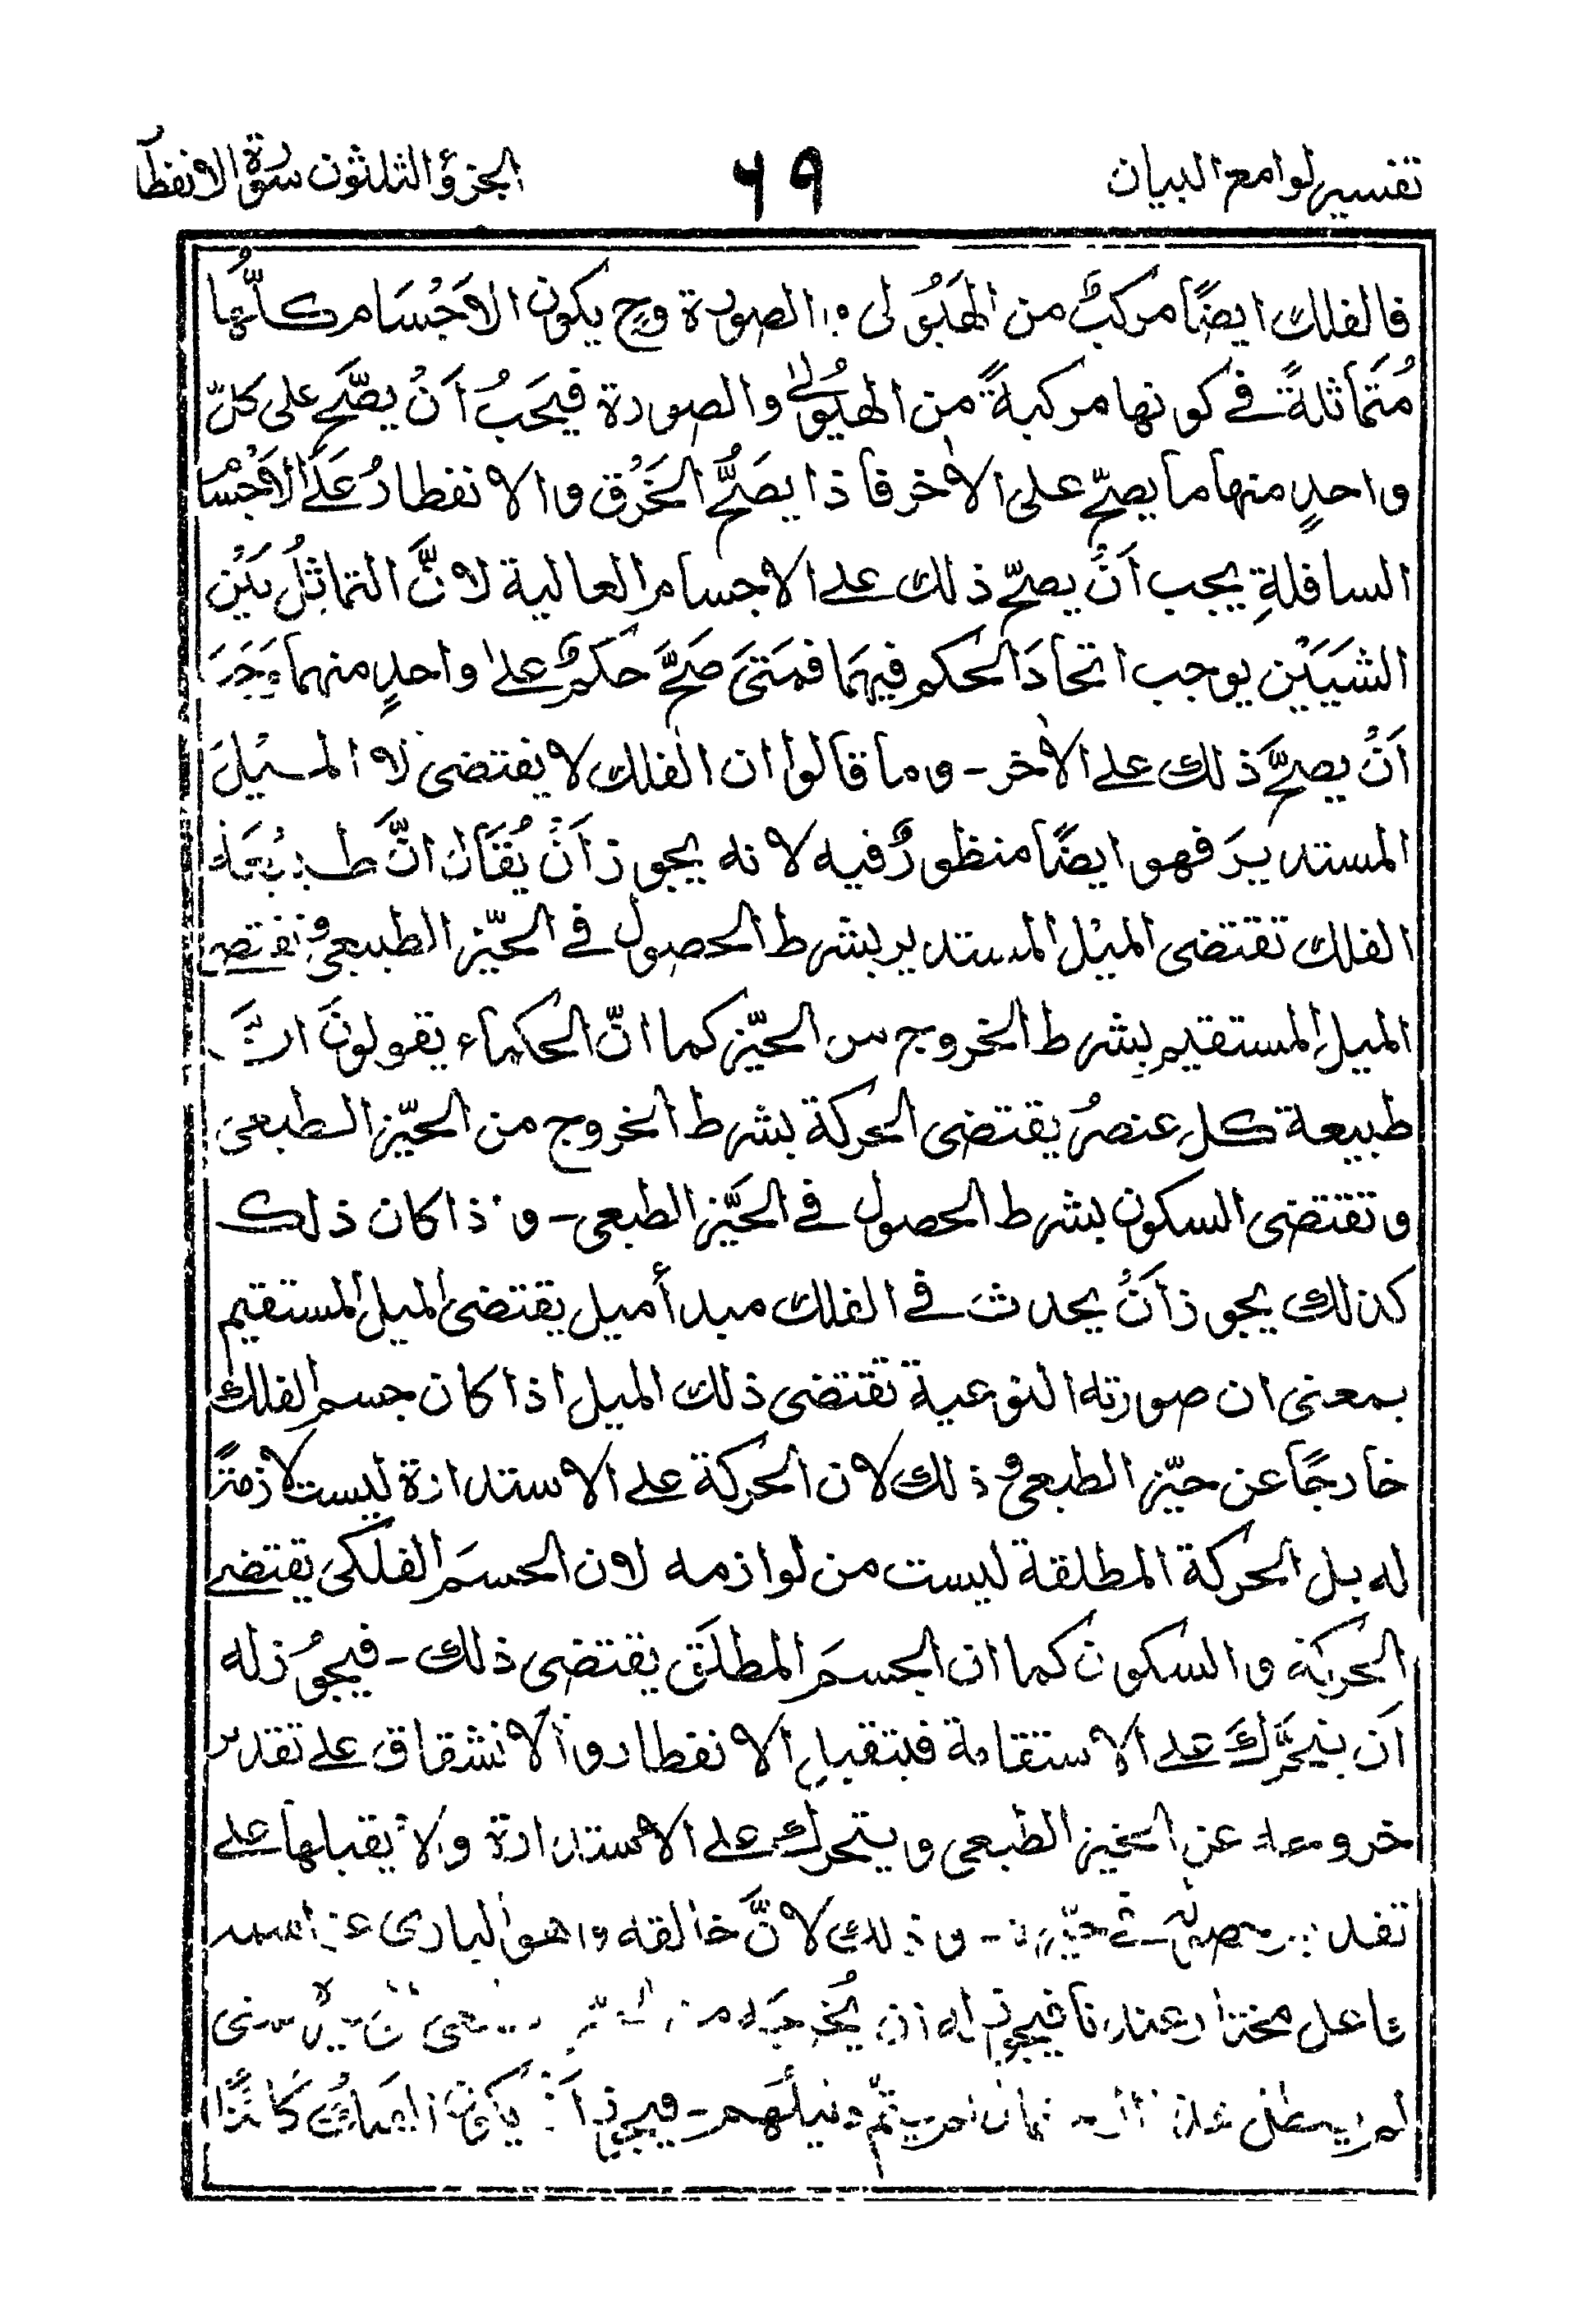 تفسير لوامع البيان ٦٩ الجزؤ الثلثون سورة الانفطا
فالفلك ايضًا مركبٌ من الهَيُولى والصورة وح يكون الاَجْسَام كلُّها
مُتَماثلةً فى كونها مركبةً من الهيُولٰى والصورة فيَجبُ اَنْ يصّحَ على كلّ
واحدٍ منها ما يصحّ على الاٰخر فاذا يصَحُّ الخَرْق والانفطارُ عَلَى الاَجْسَا
السافلةِ يجب اَنْ يصحّ ذلك على الاجسام العالية لانَّ التماثُلَ بَيْن
الشيَيَيْن يوجب اتحادَ الحكم فيهَما فمَتىَ صَحَّ حكمٌ على واحدٍ منهما وَجَبَ
اَنْ يصحَّ ذلك على الاٰخر - وما قالوا ان الفلك لا يقتضى الا الميْلَ
المستديرَ فهو ايضًا منظورٌ فيه لانه يجوز اَنْ يُقَال انَّ طبيْعَة
الفلك تقتضى الميْل المستدير بشرط الحصول فى الحيّز الطبيعى وتقتضى
الميل المستقيم بشرط الخروج من الحيّز كما انّ الحكماء يقولونَ انَّ
طبيعة كل عنصرٍ يقتضى الحركة بشرط الخروج من الحيّز الطبعى
وتقتضى السكون بشرط الحصول فى الحَيَّز الطبعى - واذا كان ذلك
كذلك يجوز اَنْ يحدث فى الفلك مبدأ ميل يقتضى الميل المستقيم
بمعنى ان صورته النوعية تقتضى ذلك الميل اذا كان جسم الفلك
خارجًا عن حيّز الطبعى وذلك لان الحركة على الاستدارة ليست لازمةً
له بل الحركة المطلقة ليست من لوازمه لان الجسَم الفلَكى يقتضى
الحركة والسكون كما ان الجسمَ المطلَق يقتضى ذلك - فيجوُز له
اَن يتحَّركَ على الاستقامة فيتقبل الانفطار والانشقاق على تقدير
خروجه عن الحيز الطبعى ويتحرك على الاستدارة ولا يقبلها على
تقدير حصوله فى حيّزه - وذلك لانَّ خالقه وهو البارى عز اسمه
فاعل مختار عندنا فيجوز له ان يُخرجَه من
فيجوز اَنْ يكون